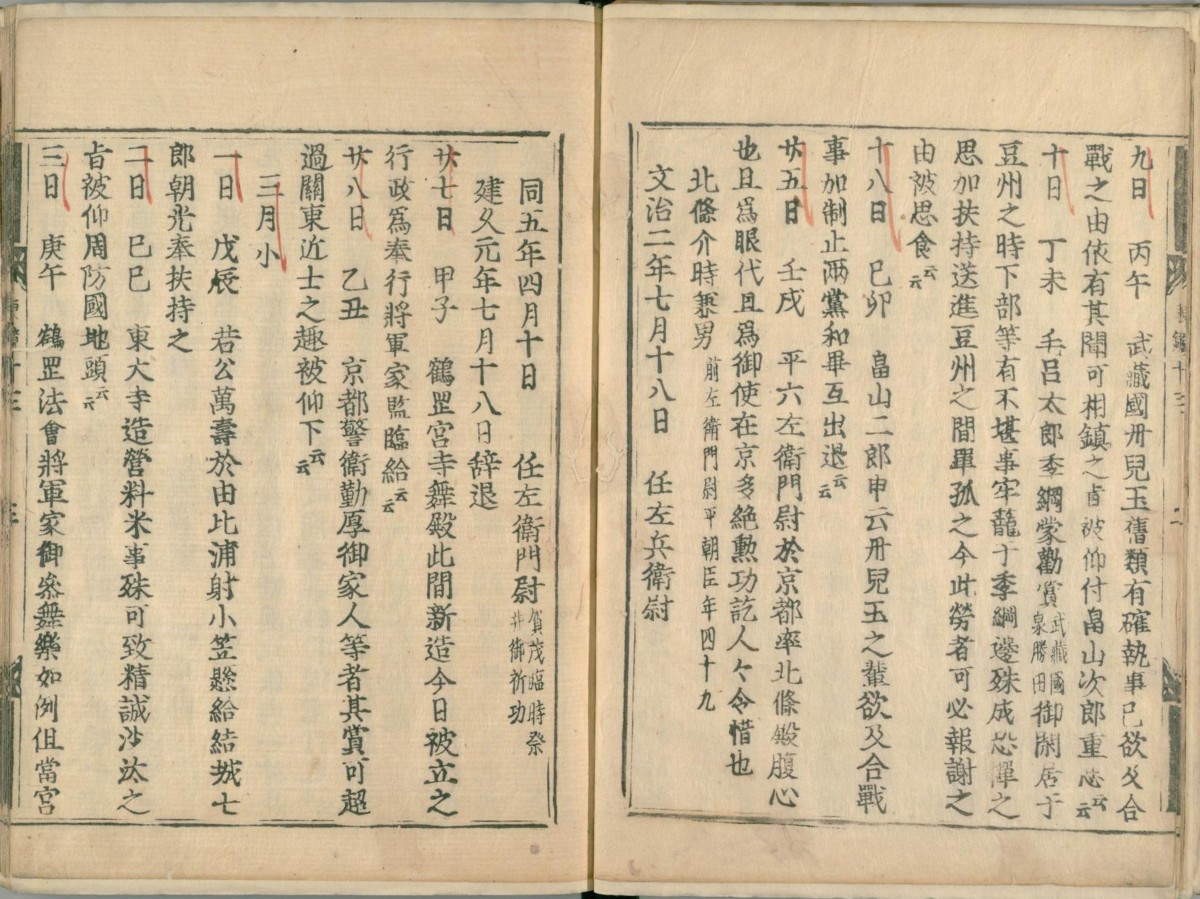 九日　丙午　武藏國丹兒玉舊類有確執事已欲及合
戰之由依有其聞可相鎮之旨被仰付畠山次郎重忠云云
十日　丁未　毛呂太郎季綱蒙勸賞武藏國泉勝田御閑居于
豆州之時下部等有不堪事牢籠于季綱邊殊成恐惲之
思加扶持送進豆州之間單孤之今此勞者可必報謝之
由被思食云云
十八日　己卯　畠山二郎申云丹兒玉之輩欲及合戰
事加制止两黨和畢互出退云云
廿五日　壬戌　平六左衛門尉於京都卒北條殿腹心
也且爲眼代且爲御使在京多絶勲功訖人々令惜也
北條介時兼男　前左衛門尉平朝臣年四十九
文治二年七月十八日　任左兵衛尉
同五年四月十日　任左衛門尉賀茂臨時祭并御祈功
建久元年七月十八日辞退
廿七日　甲子　鶴罡宮寺舞殿此間新造今日被立之
行政爲奉行將軍家監臨給云云
廿八日　乙丑　京都警衛勤厚御家人等者其賞可超
過關東近士之趣被仰下云云
三月小
一日　戊辰　若公萬壽於由比浦射小笠懸給結城七
郎朝光奉扶持之
二日　己巳　東大寺造營料米事殊可致精誠沙汰之
旨被仰周防國地頭云云
三日　庚午　鶴罡法會將軍家御參舞樂如例但當宮